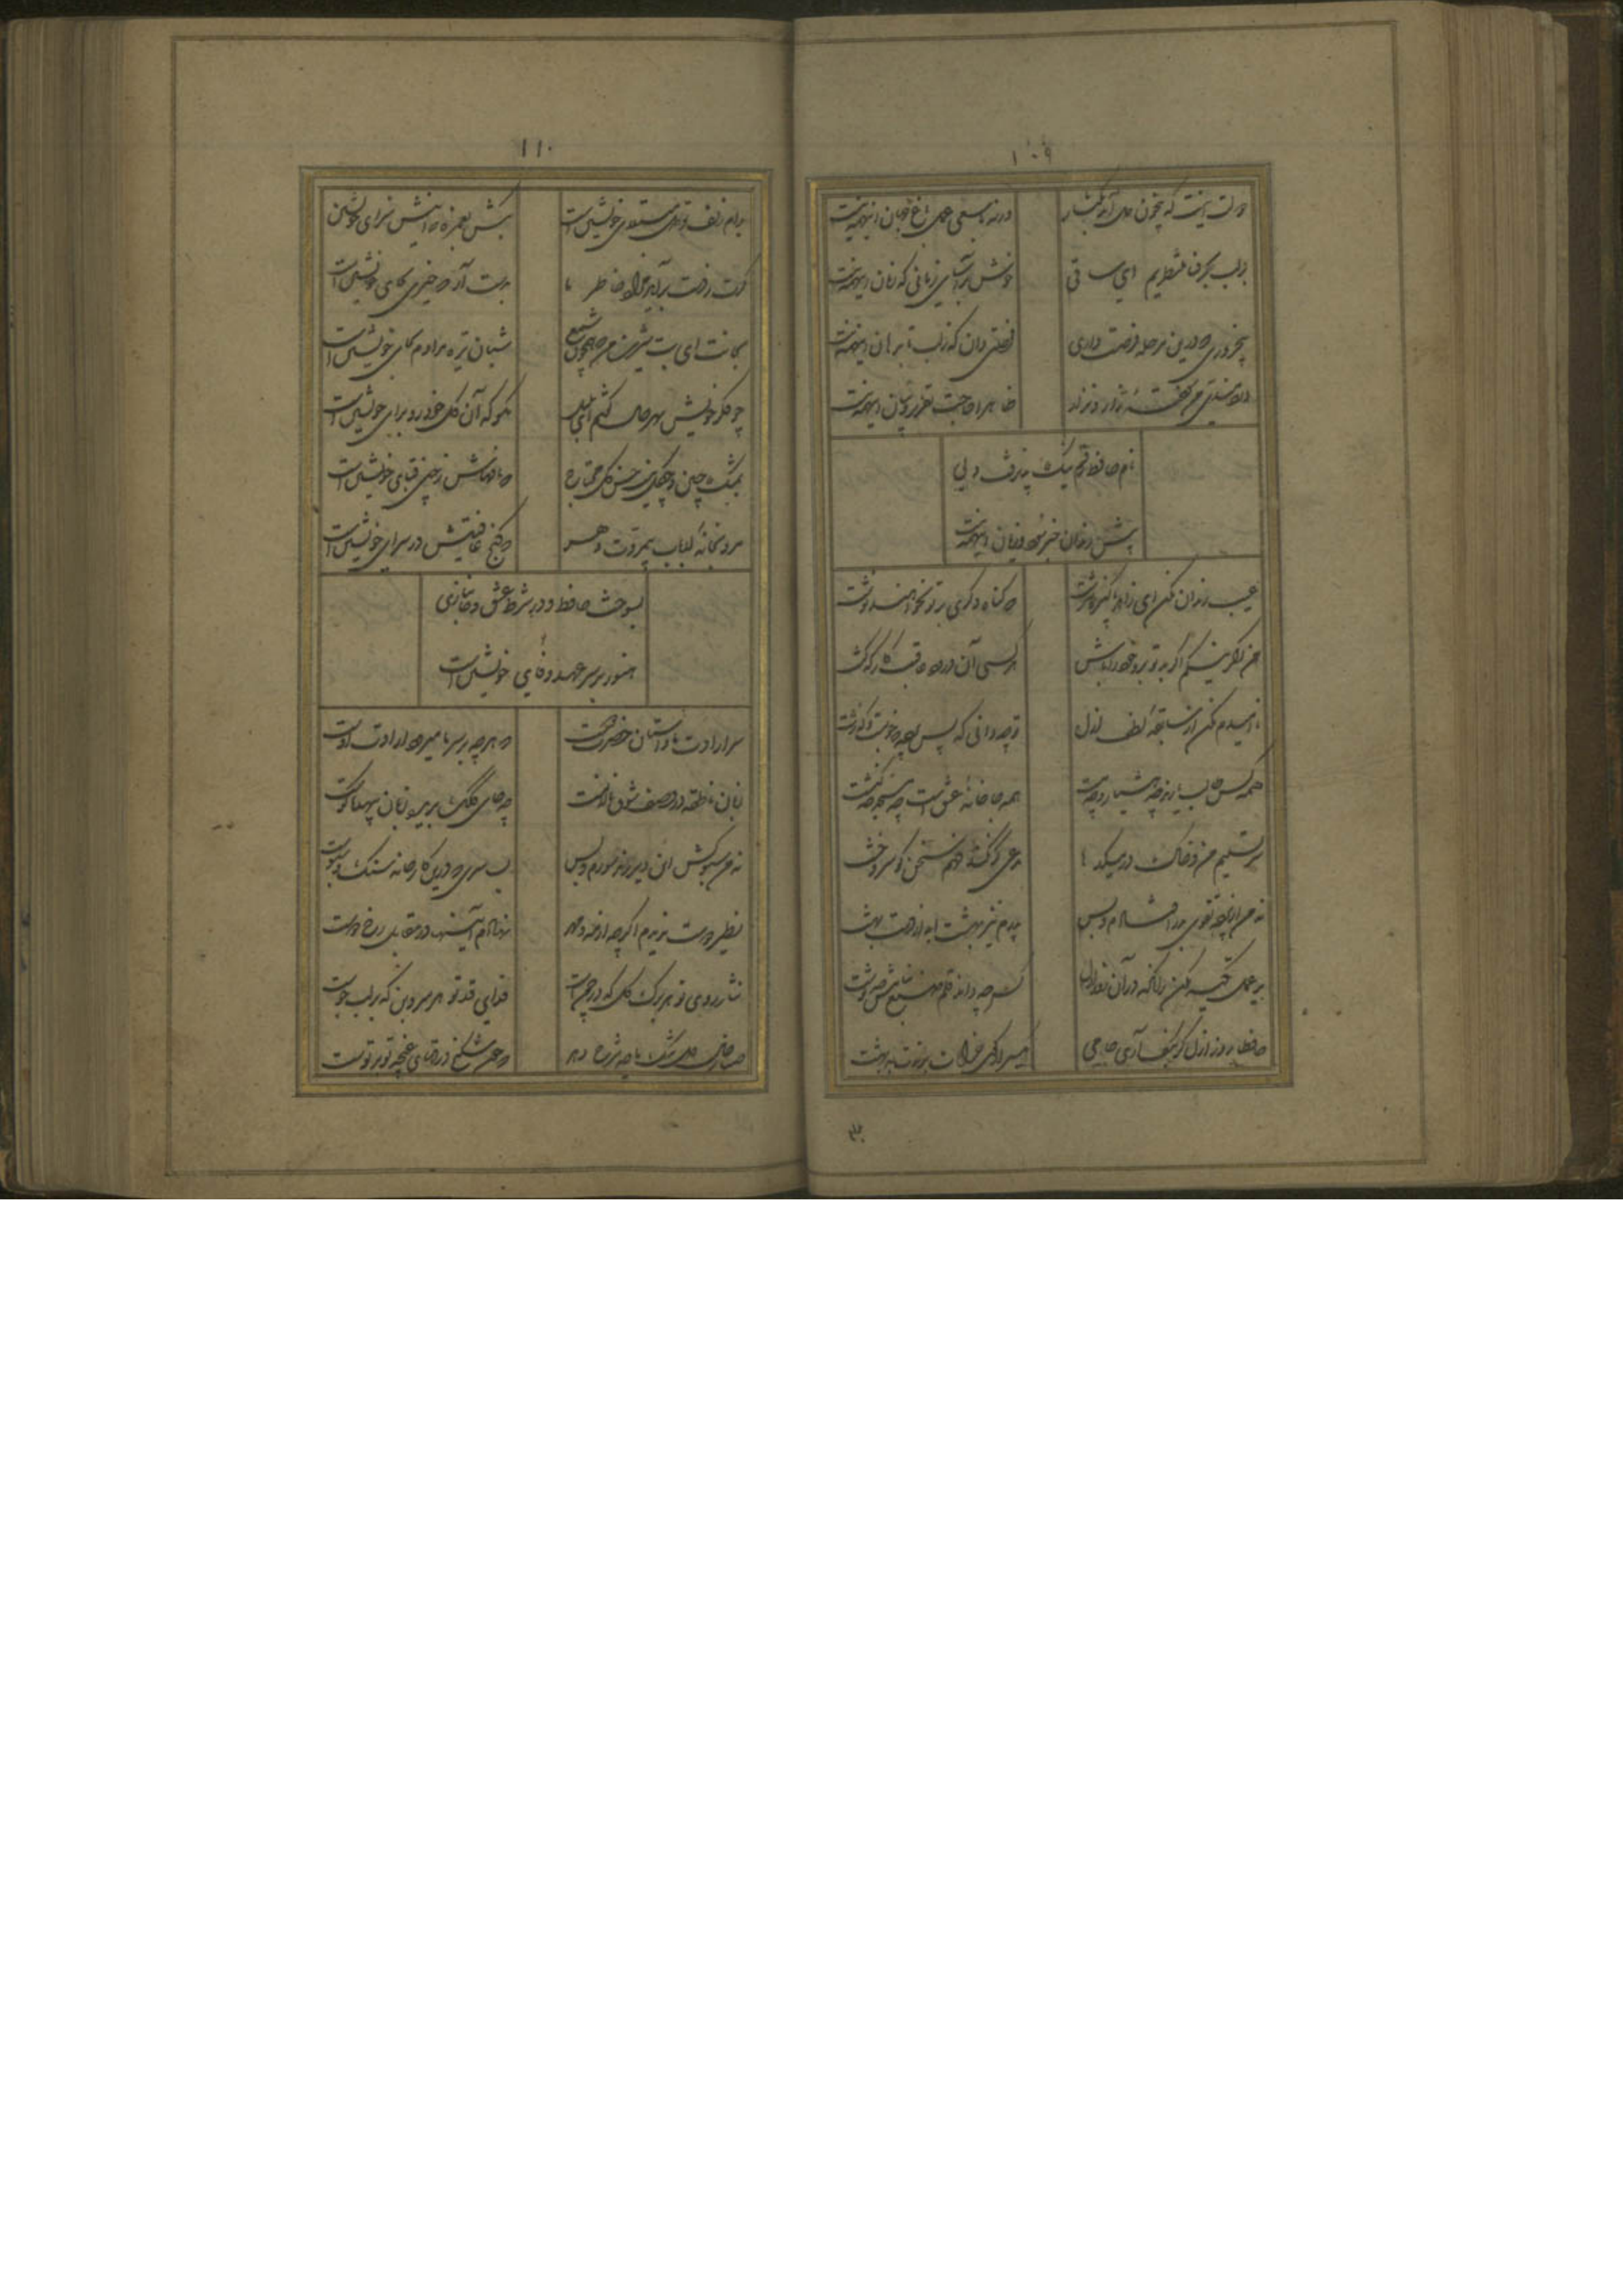 ۱۰۹
دولت آنست که بیخون دل آید بکنار
ورنه با سعی عمل باغ جنان اینهمه نیست
بر لب بحر فنا منتظریم ای ساقی
خوش بیاسای زمانی که زمان اینهمه نیست
پنجروزی که درین مرحله فرصت داری
فرصتی دان که ز لب تا بدهان اینهمه نیست
دردمندی من سوخته زار و نزار
ظاهرا حاجت تقریر و بیان اینهمه نیست
نام حافظ رقم نیک پذیرفت ولی
پیش رندان رقم سود و زیان اینهمه نیست
عیب رندان مکن ای زاهد پاکیزه سرشت
که گناه دگری بر تو نخواهند نوشت
من اگر نیکم اگر بد تو برو خود را باش
هر کسی آن درود عاقبت کار که کشت
نا امیدم مکن از سابقه لطف ازل
تو چه دانی که پس پرده که خوبست و که زشت
همه کس طالب یارند چه هشیار و چه مست
همه جا خانه عشق است چه مسجد چه کنشت
سر تسلیم من و خاک در میکدها
مدعی گر نکند فهم سخن گو سر و خشت
نه من از پرده تقوی بدر افتادم و بس
پدرم نیز بهشت ابد از دست بهشت
بر عمل تکیه مکن زانکه در آن روز ازل
تو چه دانی قلم صنع بنامت چه نوشت
حافظا روز ازل گر بکف آری جامی
یکسر از کوی خرابات برندت ببهشت
۱۱۰
بدام زلف تو دل مبتلای خویشتن است
بکش بغمزه که اینش سزای خویشتن است
گرت ز دست برآید مراد خاطر ما
بدست آر که خیری بجای خویشتن است
بجانت ای بت شیرین من که همچون شمع
شبان تیره مرادم فنای خویشتن است
چو فکر خویش بهر حال گفتم ای بلبل
مکن که آن گل خودرو برای خویشتن است
بمشک چین و چگل نیست حسن گل محتاج
که نافهاش ز چین قبای خویشتن است
مرو بخانه ارباب بیمروت دهر
که کنج عافیتش در سرای خویشتن است
بسوخت حافظ و در شرط عشق و جانبازی
هنوز بر سر عهد و وفای خویشتن است
سر ارادت ما و آستان حضرت دوست
که هر چه بر سر ما میرود ارادت اوست
زبان ناطقه در وصف شوق ما لالست
چه جای کلک بریده زبان بیهده گوست
نه من سبوکش این دیر رند سوزم و بس
بسا سری که درین کارخانه سنگ و سبوست
نظیر دوست ندیدم اگر چه از مه و مهر
نهادم آینها در مقابل رخ دوست
نثار روی تو هر برگ گل که در چمن است
فدای قد تو هر سروبن که بر لب جوست
صبا ز حال دل تنگ ما چه شرح دهد
که چون شکنج ورقهای غنچه تو بر توست